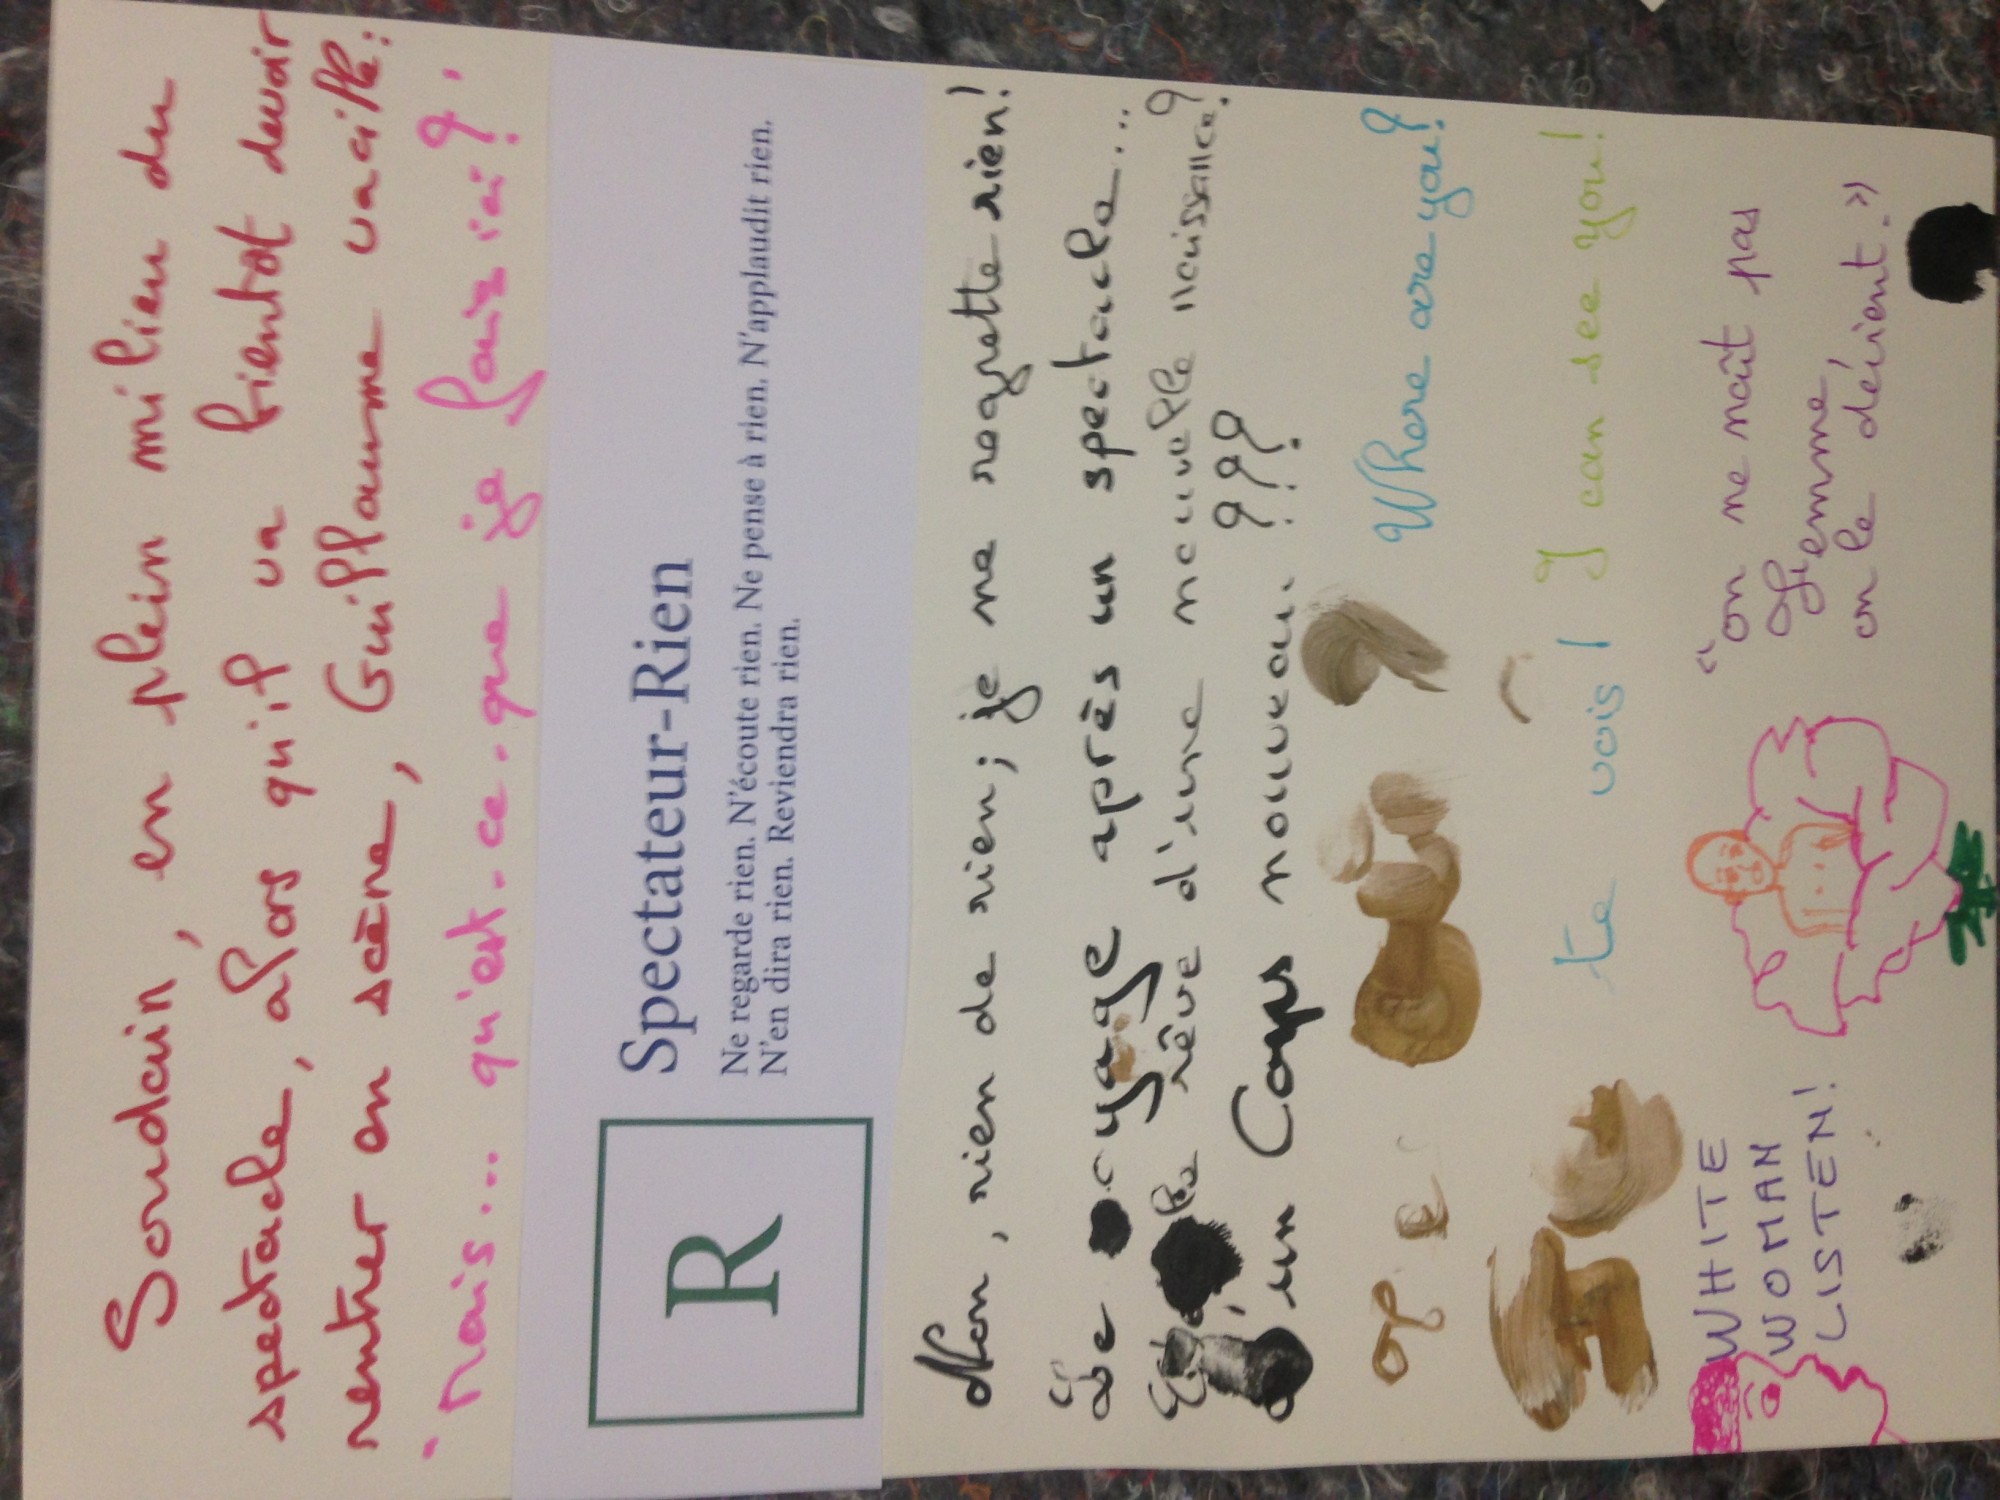 Soudain, en plein milieu du
spectacle, alors qu'il va bientôt devoir
rentrer en scène, Guillaume vacille:
"Mais... qu'est-ce-que je fais ici?"
R
Spectateur-Rien
Ne regarde rien. N'écoute rien. Ne pense à rien. N'applaudit rien.
N'en dira rien. Reviendra rien.
Non, rien de rien; je ne regrette rien!
Le voyage après un spectacle...
Est le rêve d'une nouvelle naissance?
d'un Corps nouveau. ???
Where are you?
te vois! I can see you!
WHITE
WOMAN
LISTEN!
"on ne naît pas
femme,
on le devient."